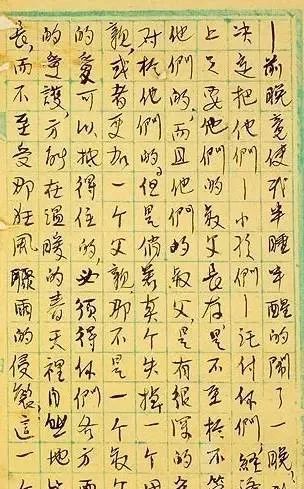 —前晚竟使我半睡半醒的鬧了一晚,
决定把他們—小孩們—託付你們,經濟
上只要他們的叔父長存,是不至於不
他們的,而且他們的叔父,是有很深的
对於他們的,但是倘若真个失掉一个
親,或者更加一个父親,那不是一个叔
的愛可以抵得住的,必須得你們各方面
的愛護,方能在溫暖的春天裡自然地
長,而不至受那狂風驟雨的侵襲,這一个